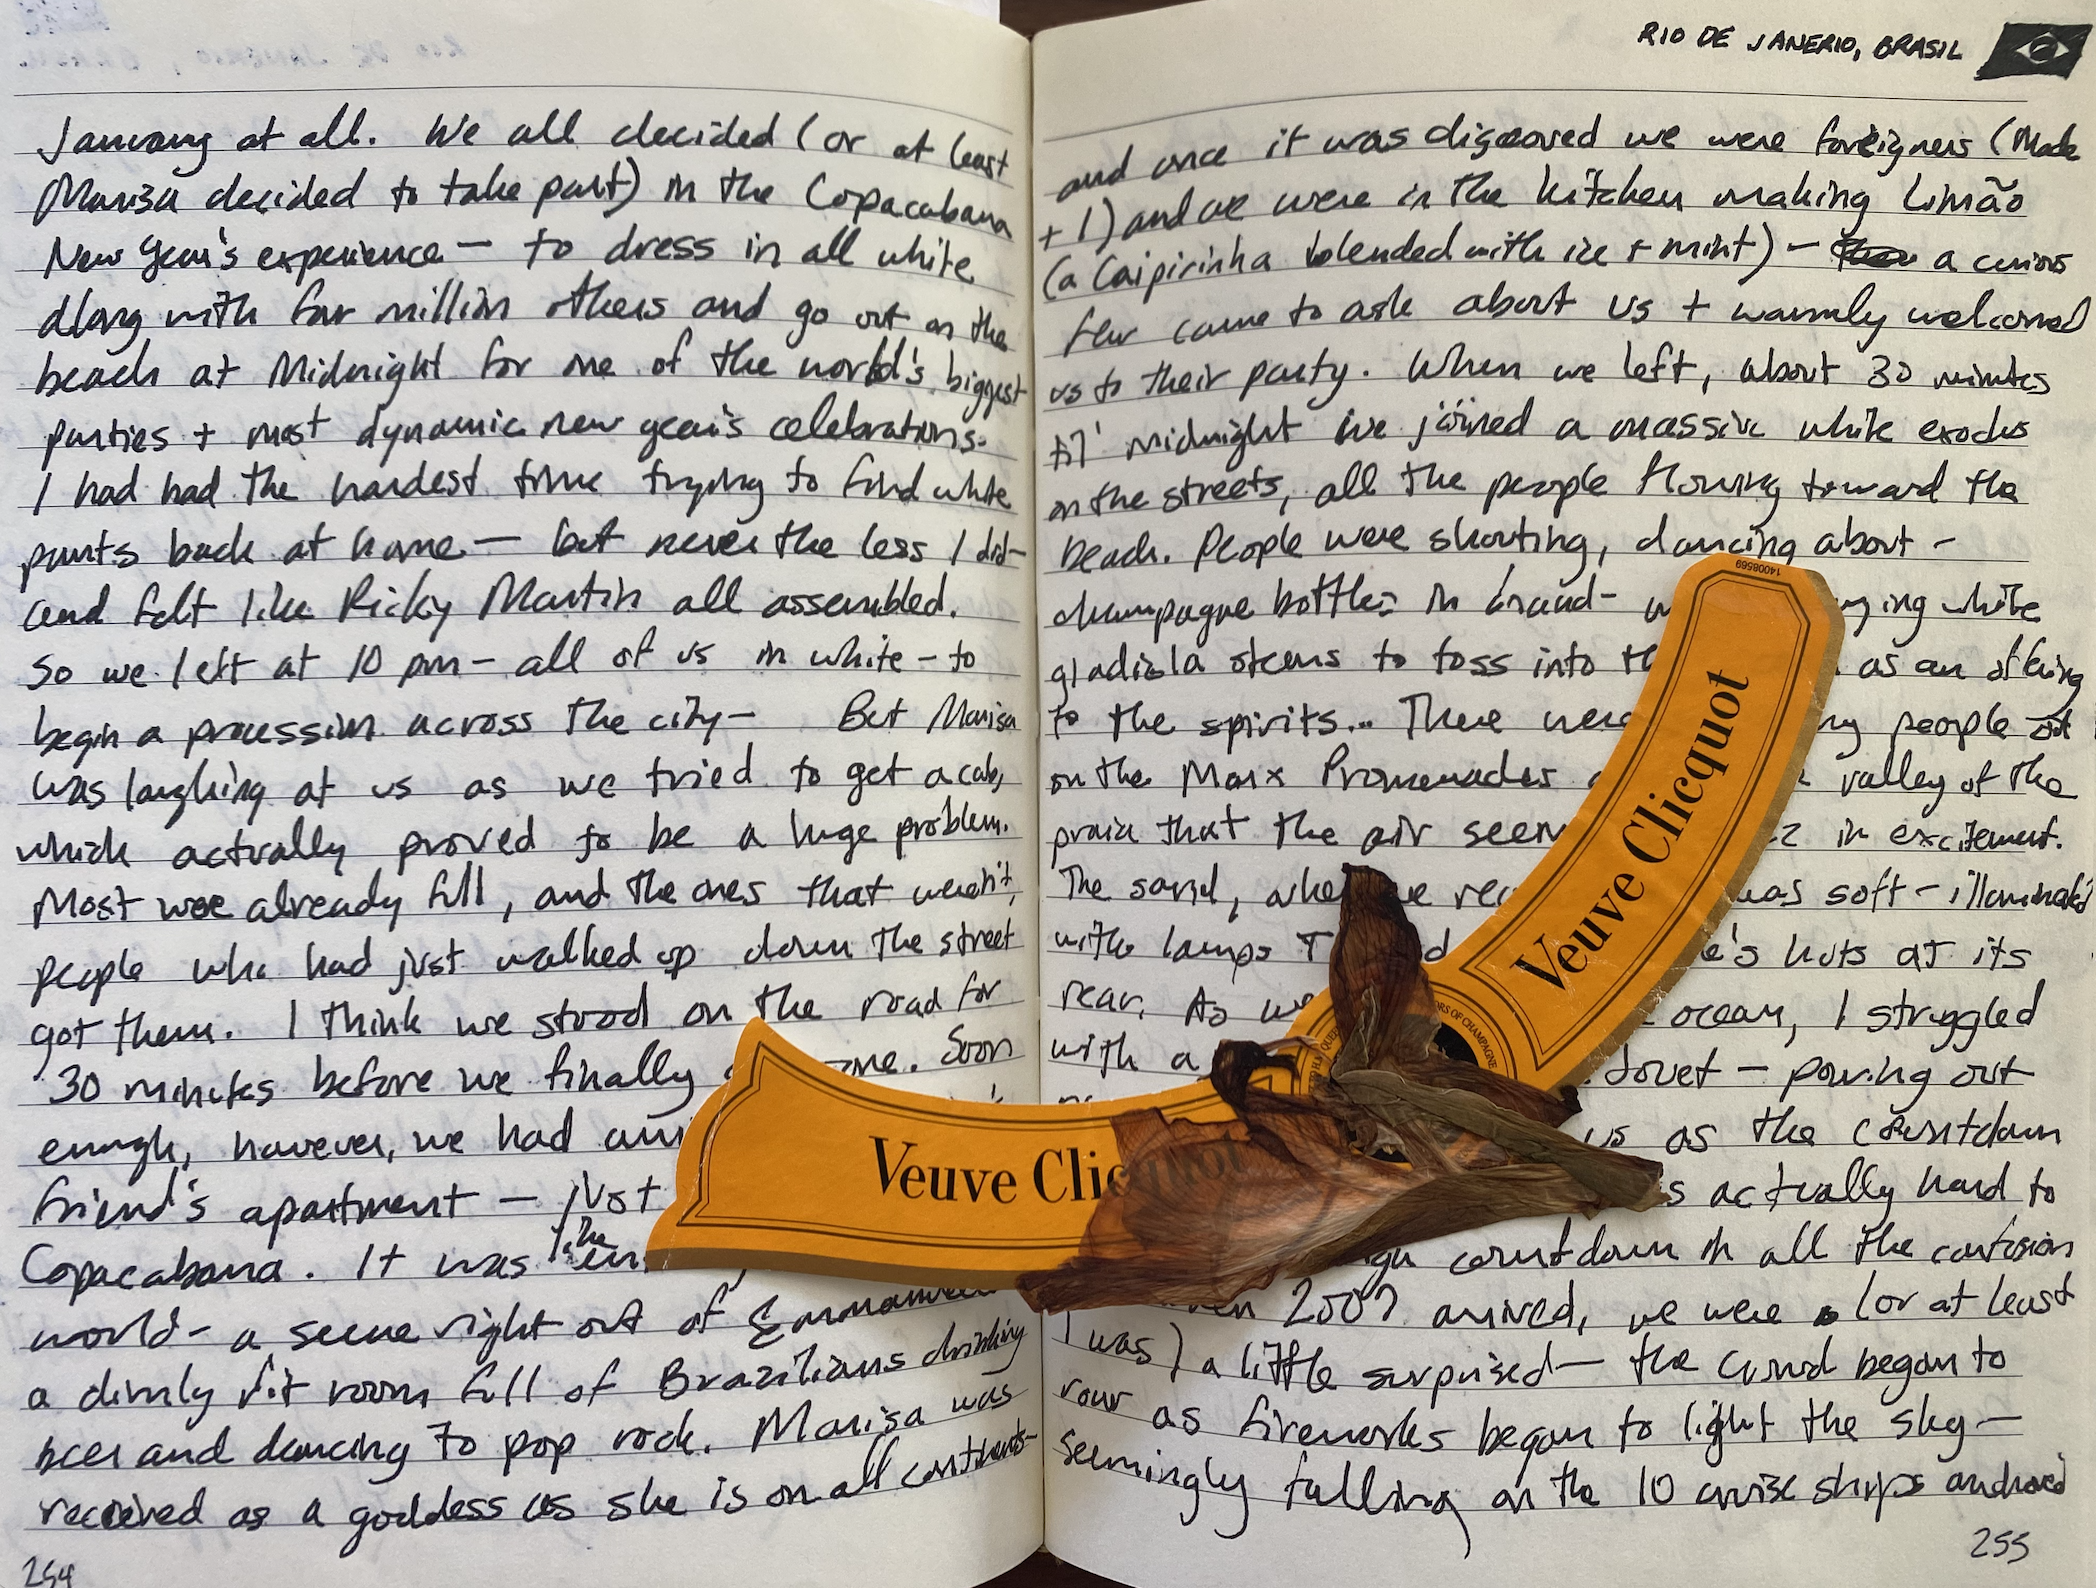 January at all. We all decided (or at least
Marisa decided to take part) in the Copacabana
New Year's experience — to dress in all white
along with four million others and go out on the
beach at Midnight for one of the world's biggest
parties + most dynamic new year's celebrations.
I had had the hardest time trying to find white
pants back at home — but never the less I did —
and felt like Ricky Martin all assembled.
So we left at 10 pm — all of us in white — to
begin a procession across the city — But Marisa
was laughing at us as we tried to get a cab,
which actually proved to be a huge problem.
Most were already full, and the ones that weren't,
people who had just walked up down the street
got them. I think we stood on the road for
30 minutes before we finally one. Soon
enough, however, we had
friend's apartment — just
Copacabana. It was like
world — a scene right out of
a dimly lit room full of Brazilians drinking
beer and dancing to pop rock. Marisa was
received as a goddess as she is on all continents —
254
RIO DE JANERIO, BRASIL
and once it was discovered we were foreigners (Made
+ 1) and we were in the kitchen making Limão
(a Caipirinha blended with ice + mint) — a curious
few came to ask about us + warmly welcomed
us to their party. When we left, about 30 minutes
til' midnight we joined a massive white exodus
on the streets, all the people flowing toward the
beach. People were shouting, dancing about —
champagne bottles in hand — white
gladiola stems to toss into as an offering
to the spirits... There were people out
on the Marx Promenades valley of the
praia that the air in excitement.
The sand, was soft — illuminated
with lamps huts at its
rear. As we ocean, I struggled
with a Clouet — pouring out
us as the countdown
actually hard to
countdown in all the confusion
2007 arrived, we were (or at least
I was) a little surprised — the crowd began to
roar as fireworks began to light the sky —
seemingly falling on the 10 cruise ships anchored
255
14008569
Veuve Clicquot
Veuve Clicquot
OF CHAMPAGNE